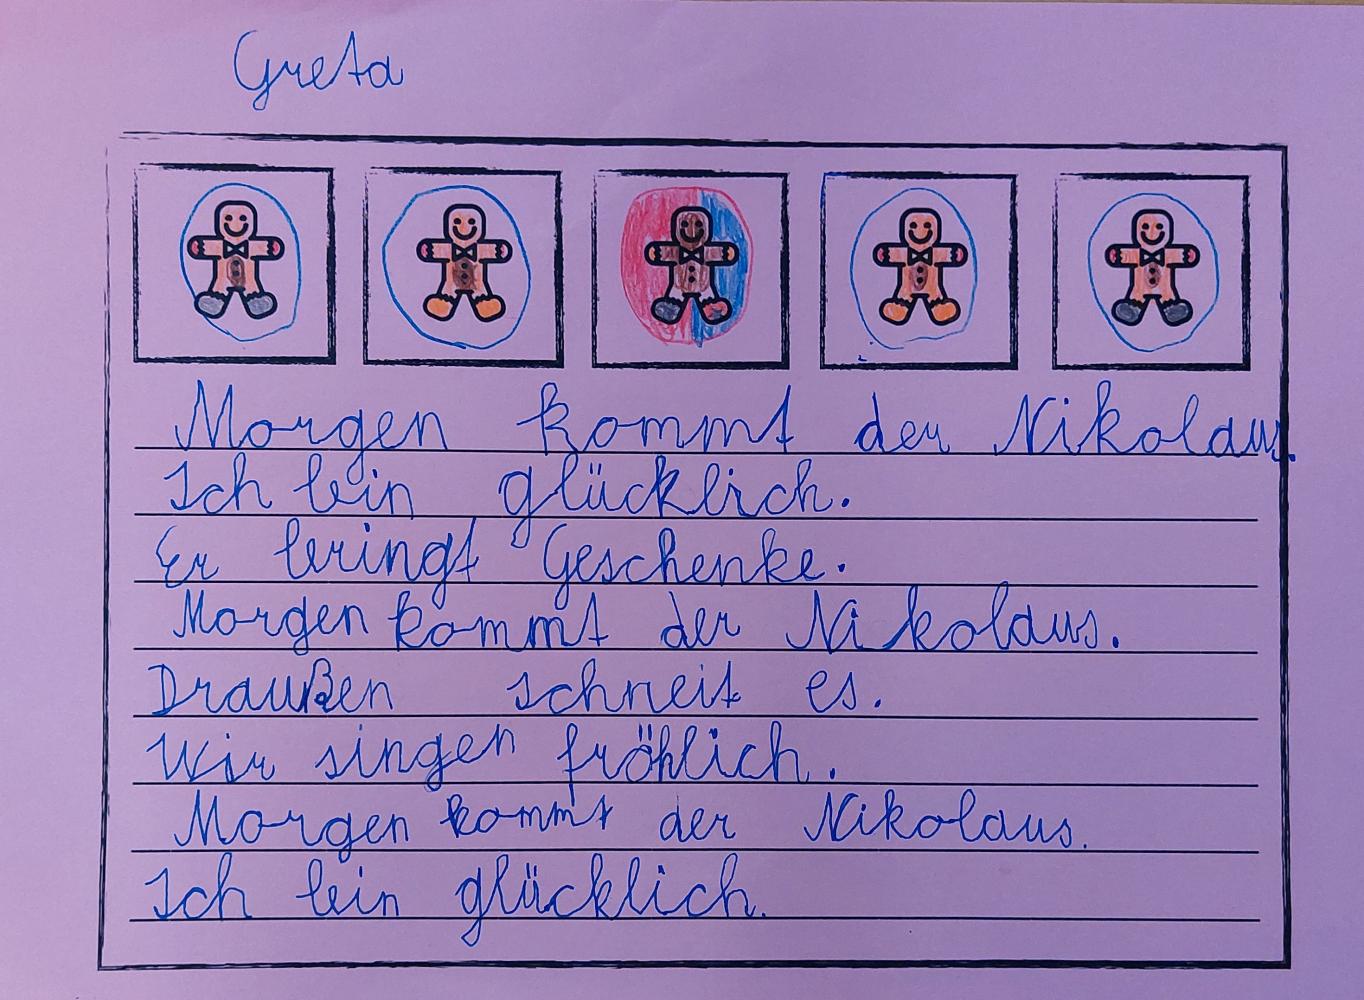 Greta
Morgen kommt der Nikolaus.
Ich bin glücklich.
Er bringt Geschenke.
Morgen kommt der Nikolaus.
Draußen schneit es.
Wir singen fröhlich.
Morgen kommt der Nikolaus.
Ich bin glücklich.